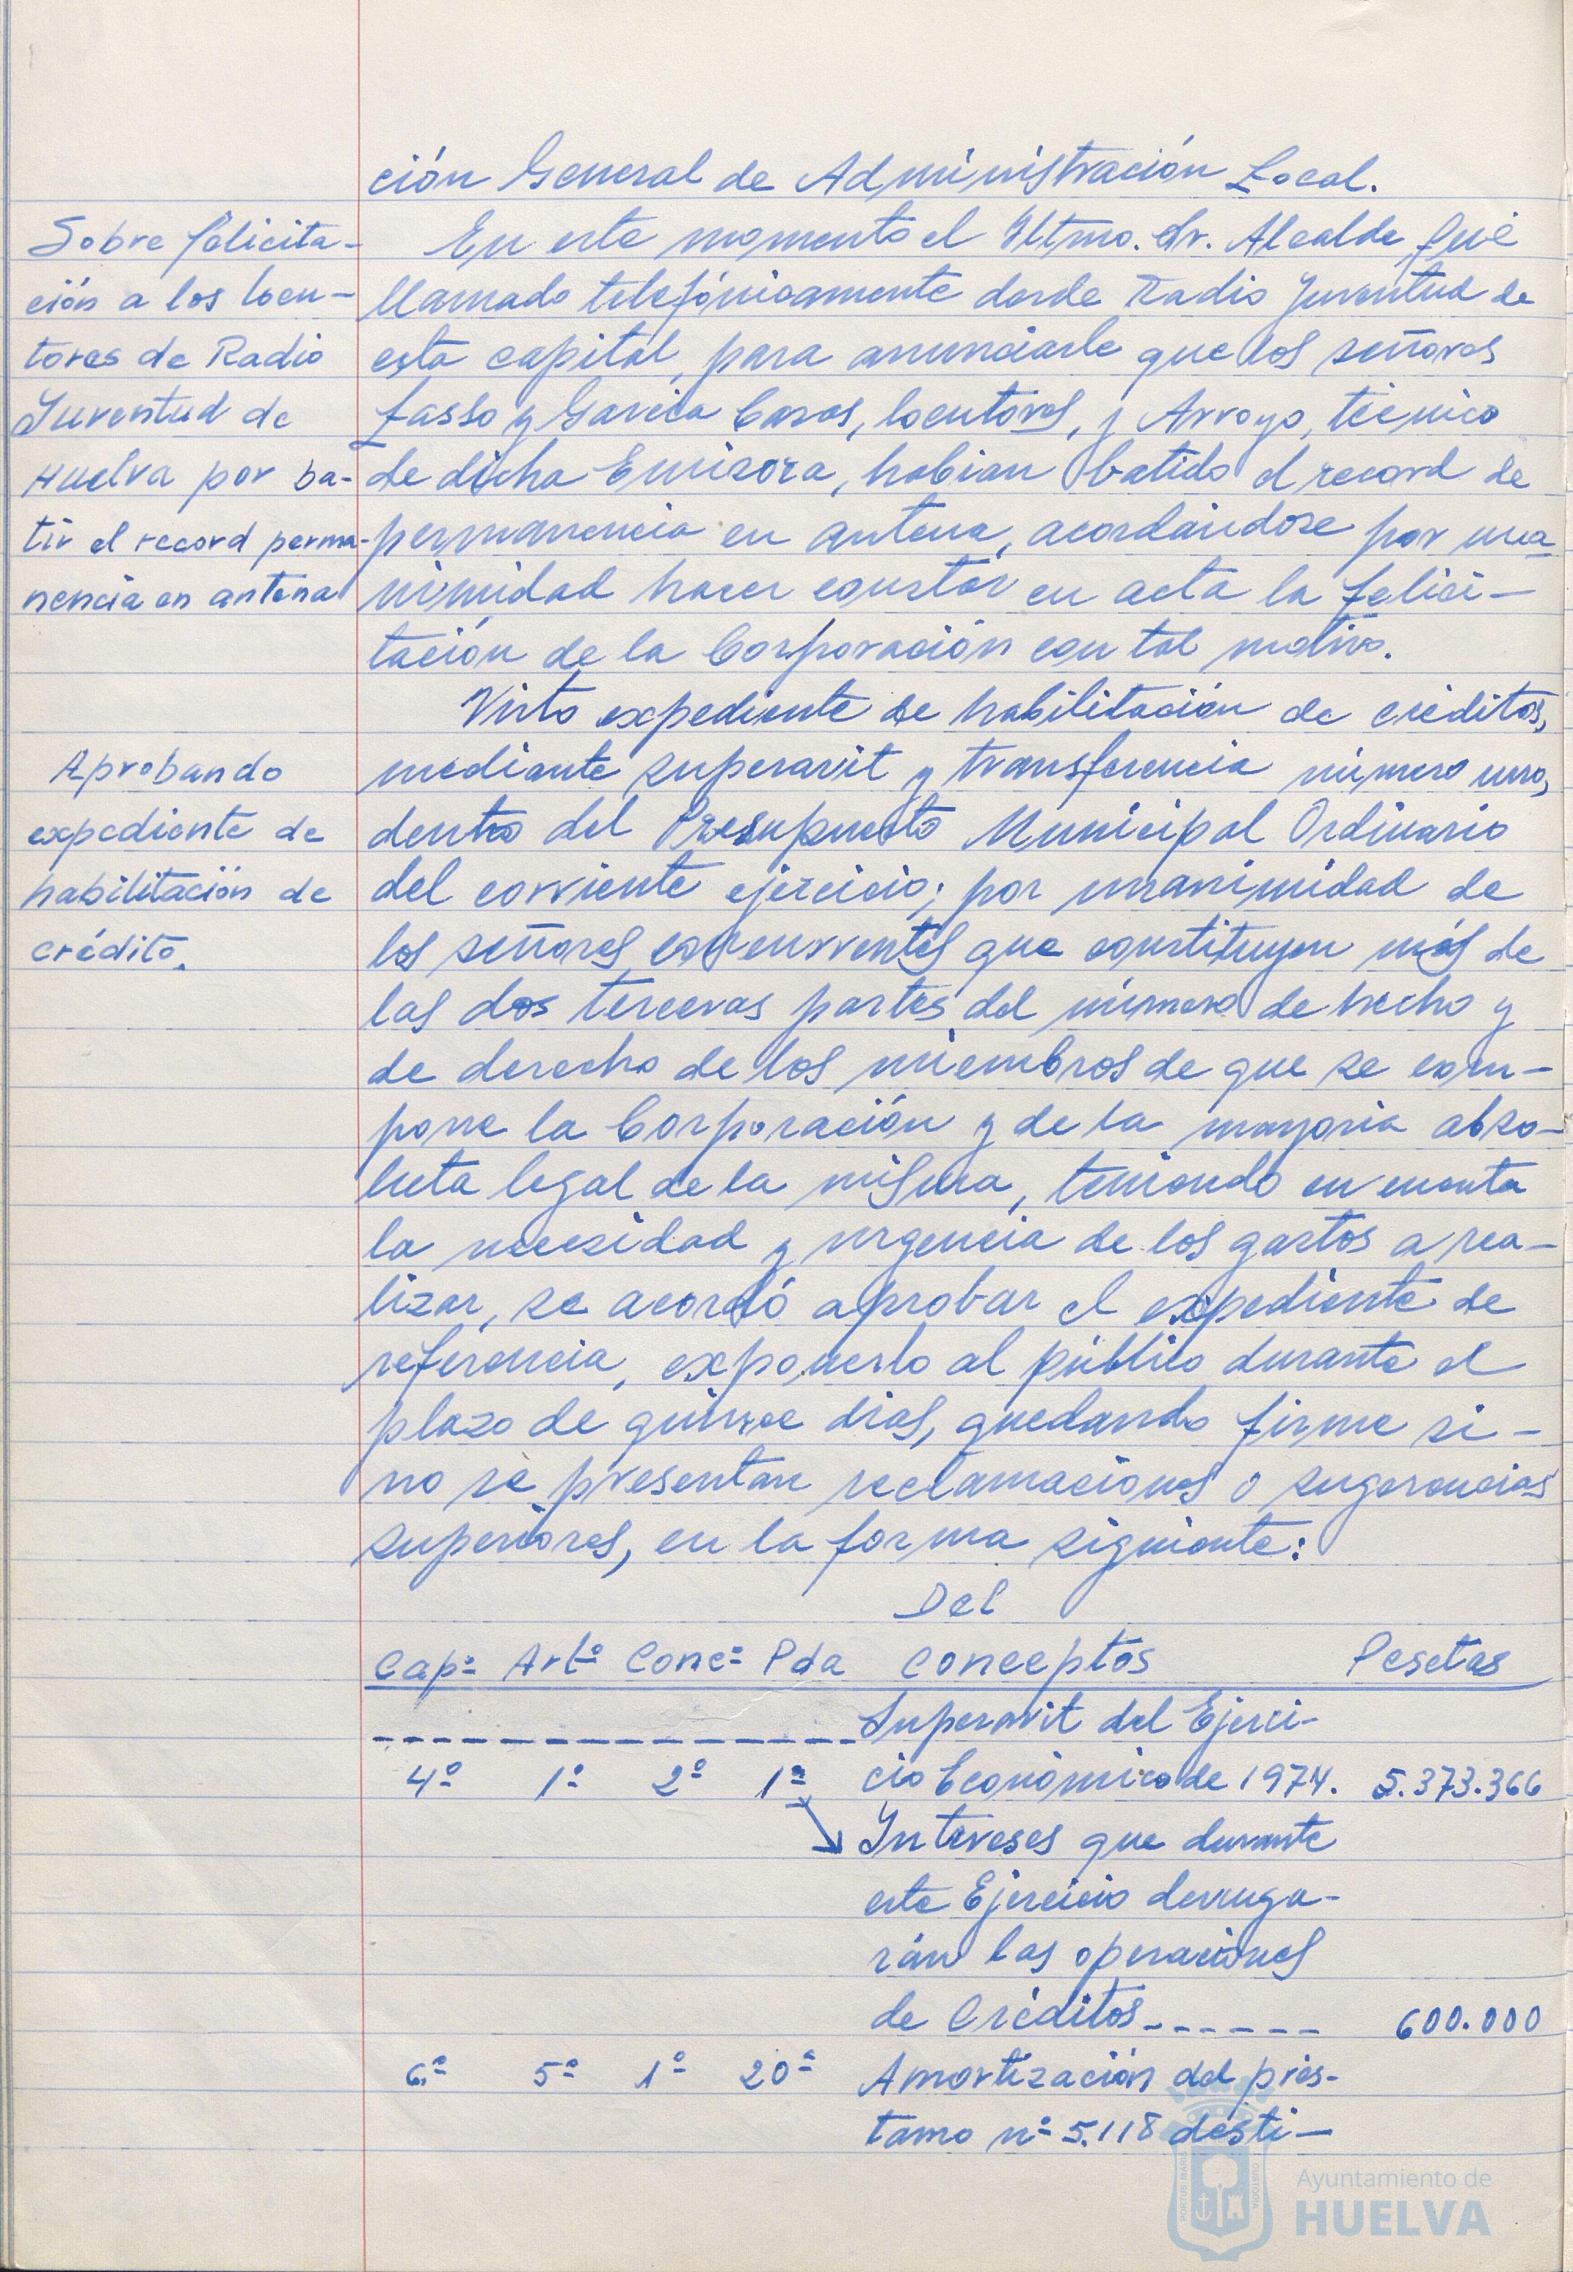 ción General de Administración Local.
Sobre felicita-
ción a los locu-
tores de Radio
Juventud de
Huelva por ba-
tir el record perma-
nencia en antena
En este momento el Iltmo. Sr. Alcalde fué
llamado telefónicamente desde Radio Juventud de
esta capital, para anunciarle que los señores
Lasso y García Casas, locutores, y Arroyo, técnico
de dicha Emisora, habian batido el record de
permanencia en antena, acordándose por una
nimidad hacer constar en acta la felici-
tación de la Corporación con tal motivo.
Aprobando
expediente de
habilitación de
crédito.
Visto expediente de habilitación de créditos,
mediante superavit y transferencia número uno,
dentro del Presupuesto Municipal Ordinario
del corriente ejercicio; por unanimidad de
los señores concurrentes que constituyen más de
las dos terceras partes del número de hecho y
de derecho de los miembros de que se com-
pone la Corporación y de la mayoria abso-
luta legal de la misma, teniendo en cuenta
la necesidad y urgencia de los gastos a rea-
lizar, se acordó aprobar el expediente de
referencia, exponerlo al público durante el
plazo de quince dias, quedando firme si-
no se presentan reclamaciones o sugerencias
superiores, en la forma siguiente:
Del
Capº Artº Concº Pda Conceptos Pesetas
Superavit del Ejerci-
4º 1º 2º 1ª cio Económico de 1974. 5.373.366
Intereses que durante
este Ejercicio devenga-
rán las operaciones
de Créditos------ 600.000
6º 5º 1º 20ª Amortización del prés-
tamo nº 5.118 desti-
PORTUS MARIS
CUSTODIA
Ayuntamiento de
HUELVA